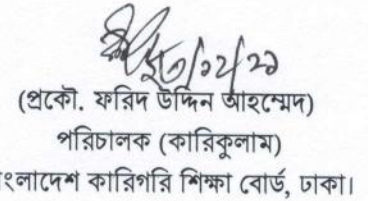 ২৩/১২/২১
(প্রকৌ. ফরিদ উদ্দিন আহম্মেদ)
পরিচালক (কারিকুলাম)
বাংলাদেশ কারিগরি শিক্ষা বোর্ড, ঢাকা।